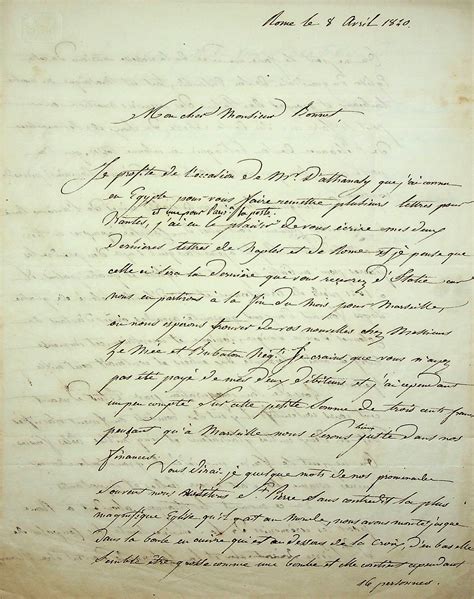 Rome le 8 Avril 1820.
Mon cher Monsieur Bonnet,
Je profite de l'occasion de Mr. D'athanasy que j'ai connu
en Egypte pour vous faire remettre plusieurs lettres pour
et une pour Paris la poste.
Nantes, j'ai eu le plaisir de vous écrire mes deux
dernières lettres de Naples et de Rome et je pense que
celle ci sera la dernière que vous recevrez d'Italie car
nous en partirons à la fin du mois pour Marseille,
où nous esperons trouver de vos nouvelles chez Messieurs
Le Mée et Négts. Je crains que vous n'ayez
pas été payé de mes deux débiteurs et j'ai cependant
un peu compté sur cette petite somme de trois cents francs
pensant qu'à Marseille nous serons bien juste dans nos
finances.
Vous dirai je quelque mots de nos promenades
souvent nous St. Pierre sans contredit la plus
magnifique Eglise qu'il y ait au monde, nous avons monté jusque
dans la boule en cuivre qui est au dessus de la Croix, d'en bas elle
semble être grosse comme une bombe et elle contient cependant
16 personnes.